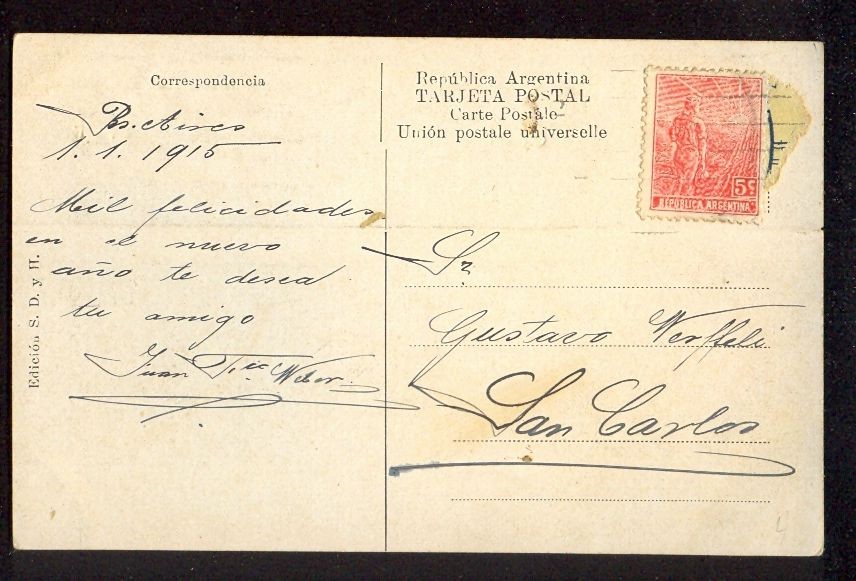 Correspondencia
Bs. Aires
1. 1. 1915
Mil felicidades
en el nuevo
año te desea
tu amigo
Juan Weber.
Edición S. D. y H.
República Argentina
TARJETA POSTAL
Carte Postale
Unión postale universelle
5c
REPÚBLICA ARGENTINA
Sr
Gustavo
San Carlos